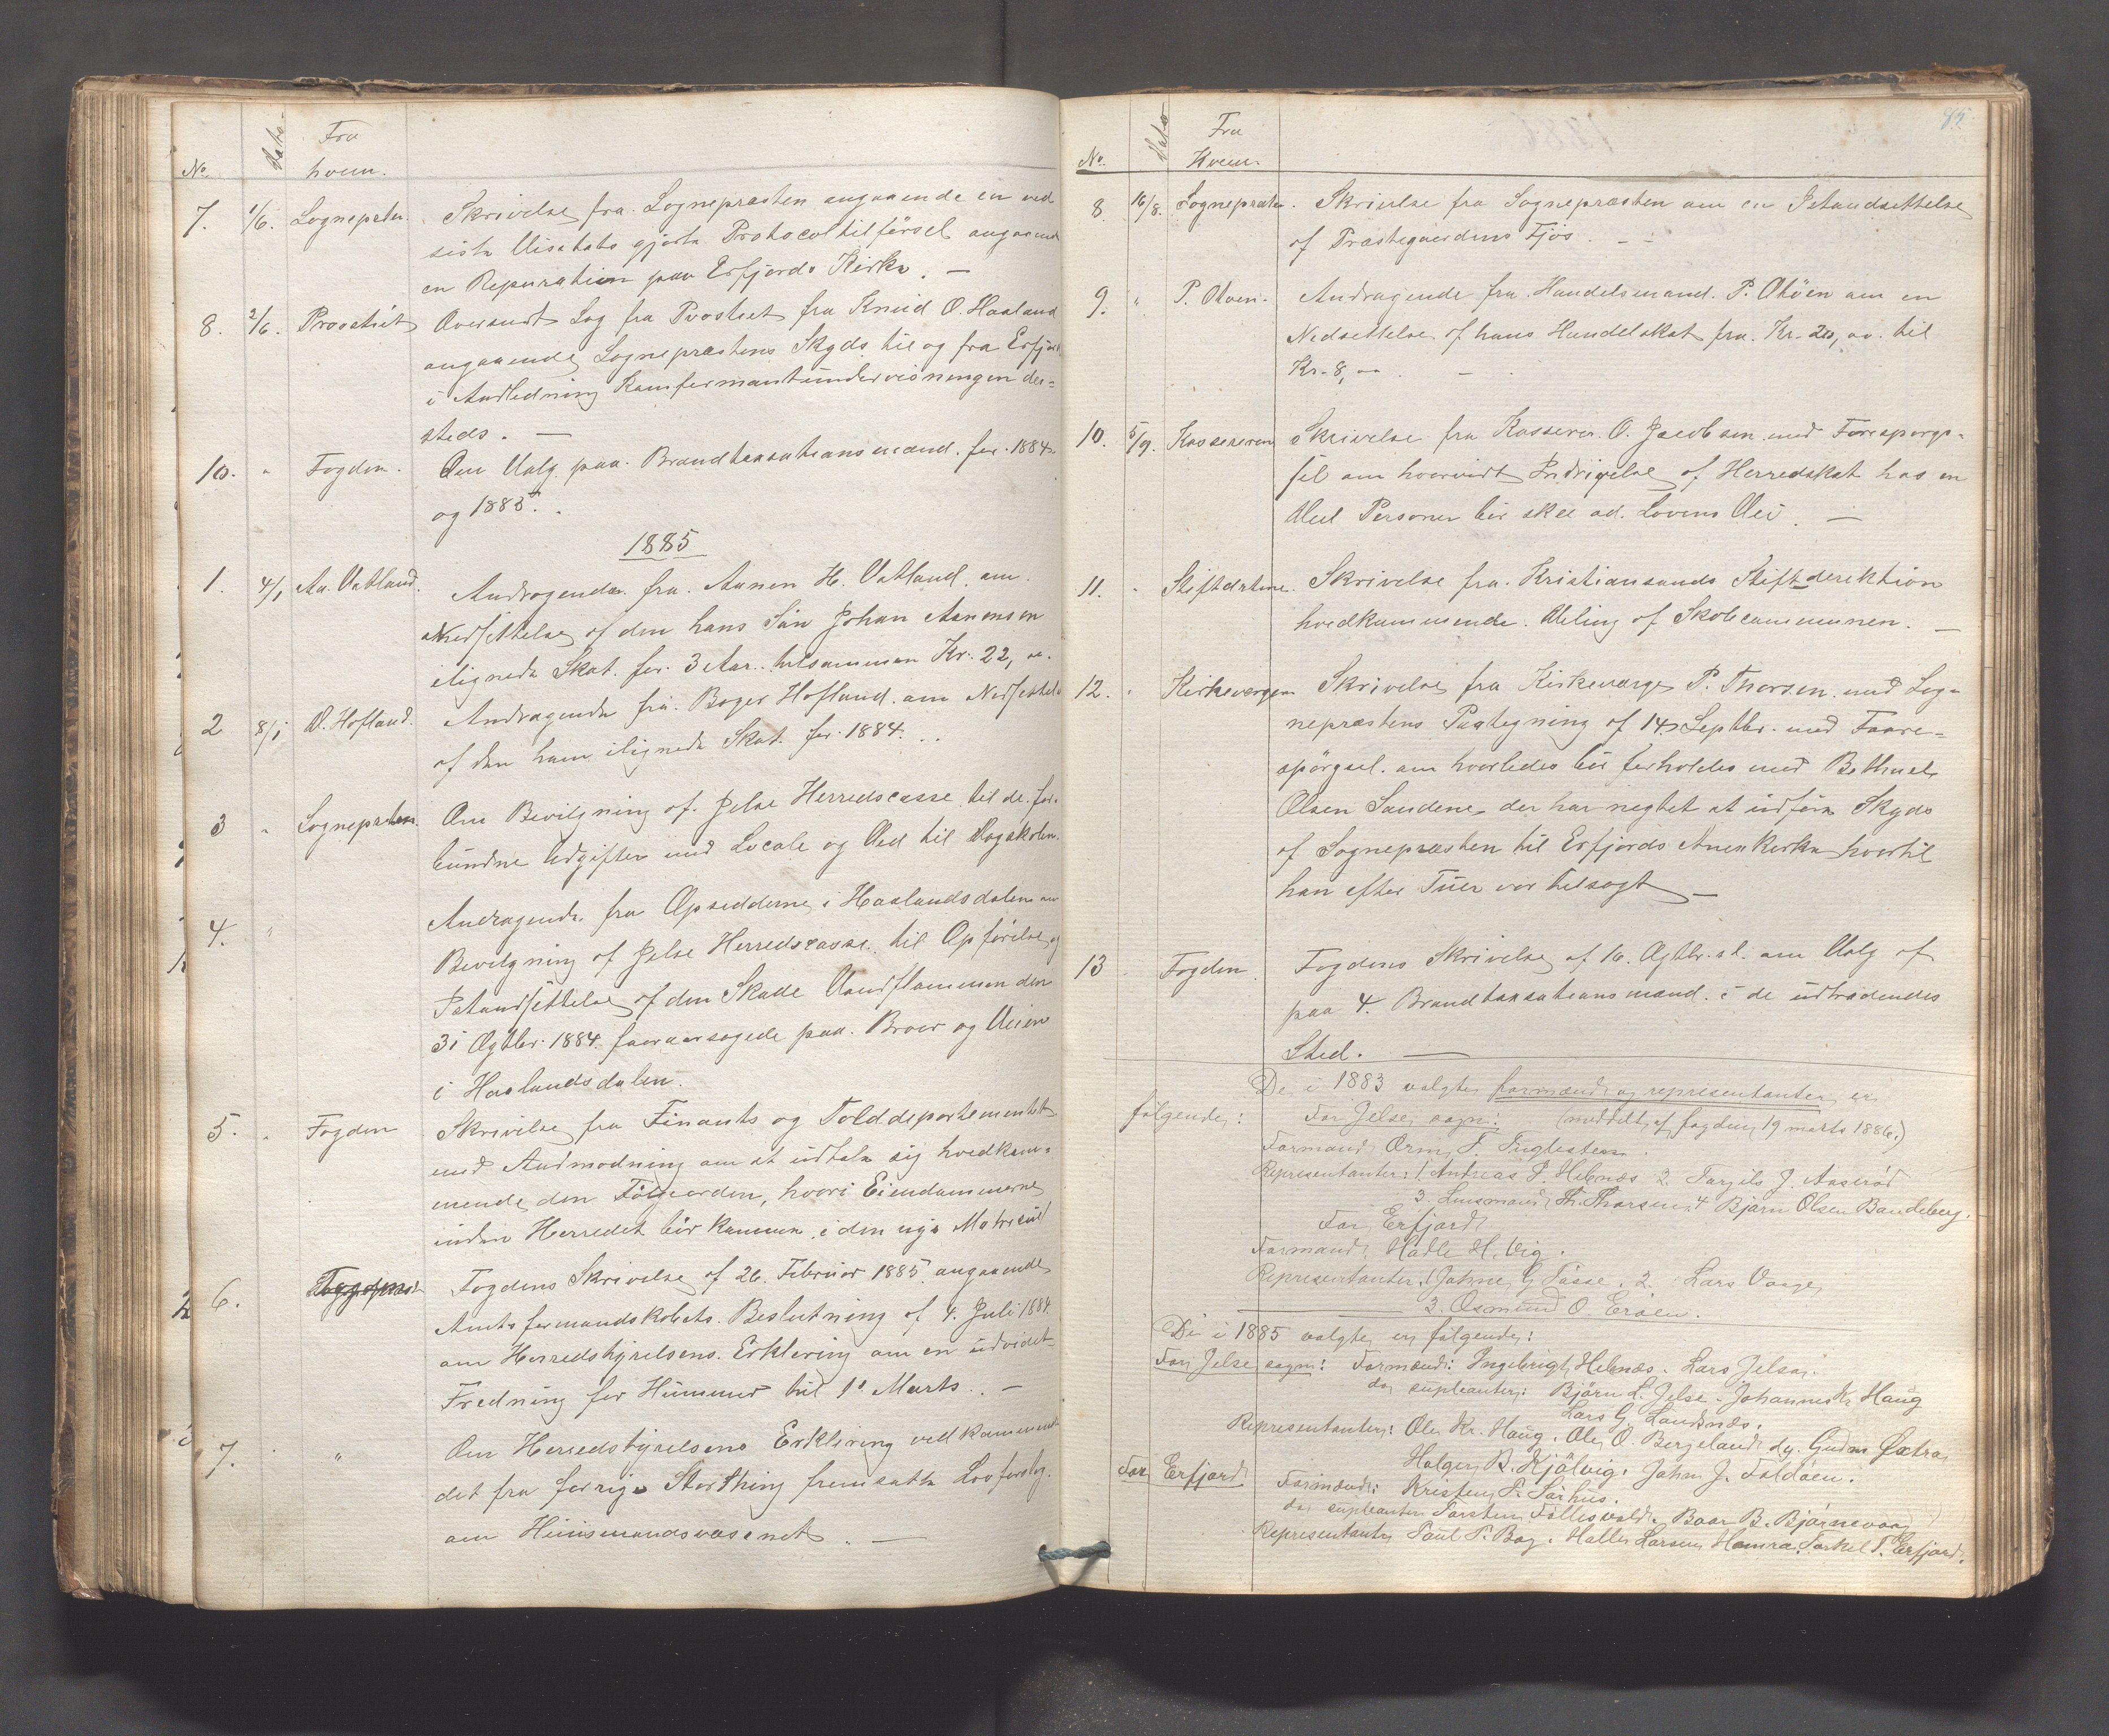 No. Dato. Fra hvem.
7. 1/6. Sogneprsten. Skrivelse fra Sognepræsten angaaende en ved
sista Visitats gjorte Protocoltilførsel angaaende
en Reparation paa Erfjords Kirke. —
8. 2/6. Provstiet Oversendt Sag fra Provstiet fra Knud O. Haaland
angaaende Sognepræstens Skyds til og fra Erfjord
i Anledning Konfermantundervisningen der=
steds. —
10. " Fogden. Om Valg paa Brandtaxationsmænd for 1884
og 1885.
1885
1. 4/1 Aa. Vatland. Andragende fra Aanen H. Vatland om
Nedsettelse af den hans Søn Johan Aanensen
ilignede Skat for 3 Aar tilsammen Kr. 22,
2 8/1 B. Hofland. Andragende fra Boger Hofland om Nedsettelse
af den ham ilignede Skat for 1884.
3 " Sogneprsten. Om Bevilgning af Jelse Herredscasse til de for=
bundne Udgifter med Locale og Ved til Dagskolen.
4. " Andragende fra Opsidderne i Haalandsdalen om
Bevilgning af Jelse Herredscasse til Opførelse og
Istandsettelse af den Skade Vandflommen den
31 Ogtbr. 1884 foraarsagede paa Broer og Veien
i Haalandsdalen.
5. " Fogden Skrivelse fra Finants og Tolddepartementet
med Anmodning om at udtale sig hvedkom=
mende den Følgeorden, hvori Eiendommerne
inden Herredet bør komme i den nye Matricul
6. Fogdens Skrivelse af 26. Februar 1885 angaaende
Amtsformandskabets Beslutning af 4. Juli 1884
om Herredstyrelsens Erklering om en udvidet
Fredning for Hummer til 1ste Marts. —
7. " Om Herredstyrelsens Erklæring vedkommende
det fra forrige Storthing fremsatte Lovforslag
om Huusmandsvæsenet. —
No. Dato Fra Hvem.
8 16/8. Sogneprsten. Skrivelse fra Sognepræsten om en Istandsettelse
af Præstegaardens Fjøs. — —
9. " P. Økøen. Andragende fra Handelsmand P. Økøen om en
Nedsettelse af hans Handelskat fra Kr. 20, oo til
Kr. 8, oo —
10. 5/9. Kassereren Skrivelse fra Kasserer O. Jacobsen med Forespørgs=
sel om hvorvidt Inddrivelse af Herredskat hos en
Deel Personer bør skee ad Lovens Vei. —
11. " Stiftdrtne. Skrivelse fra Kristiansands Stiftsderektion
hvedkommende Deling af Skolecommunen. —
12. " Kirkeværgen Skrivelse fra Kirkeværge P. Thorsen med Sog=
nepræstens Paategning af 14 Septbr. med Faare=
spørgsel om hvorledes bør forholdes med Bethuel
Olsen Sandene der har negtet at udføre Skyds
af Sognepræsten til Erfjords Anexkirke hvortil
han efter Tuer var tilsagt —
13 Fogden Fogdens Skrivelse af 16. Ogtbr. d. om Valg af
paa 4. Brandtaxationsmænd i de udtrædendes
Sted. —
De i 1883 valgte formænd og representanter er
følgende: For Jelse sogn: (meddelt af fogden 19 marts 1886.)
Formand Orm T. Tuglesteen.
Representanter: 1. Andreas P. Hebnæs 2. Torjils J. Aaserød
3. Lensmand Th. Thorsen. 4 Bjørn Olsen Bandeberg.
For Erfjord
Formand: Hadle H. Vig.
Representanter: 1 Johne G. Tasse. 2. Lars Vaage,
3. Osmund O. Erøen.
De i 1885 valgte er følgende:
For Jelse sogn: Formænd: Ingebrigt Hebnæs. Lars Jelsa.
do supleanter: Bjørn L. Jelse. Johannes K. Haug
Lars G. Landsnæs.
Representanter: Ole Kr. Haug. Ole O. Bergeland dy. Gudm Østraa
Holger B. Kjølvig. John J. Foldøen.
For Erfjord Formænd: Kristen T. Sørhus.
do supleanter Torsten Føllesvold. Baar B. Bjørnevaag
Representanter Paul P. Bog. Halle Larsen Hamra. Torkel T. Erfjord.